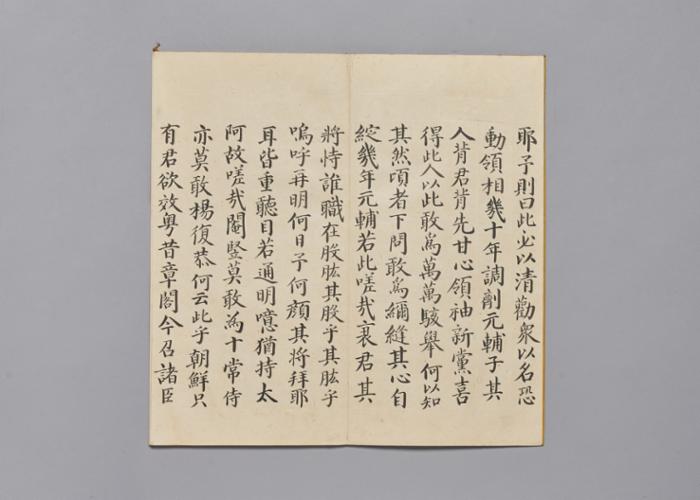 耶予則曰此必以清勸衆以名恐
動領相幾十年調劑元輔予其
人背君背先甘心領袖新黨喜
得此人以此敢爲萬萬駭擧何以知
其然頃者下問敢爲彌縫其心自
綻幾年元輔若此嗟哉衰君其
將恃誰職在股肱其股乎其肱乎
嗚呼再明何日予何顔其將拜耶
耳皆重聽目若通明噫猶持太
阿故嗟哉閹竪莫敢爲十常侍
亦莫敢楊復恭何云此乎朝鮮只
有君欲效粤昔章閣今召諸臣